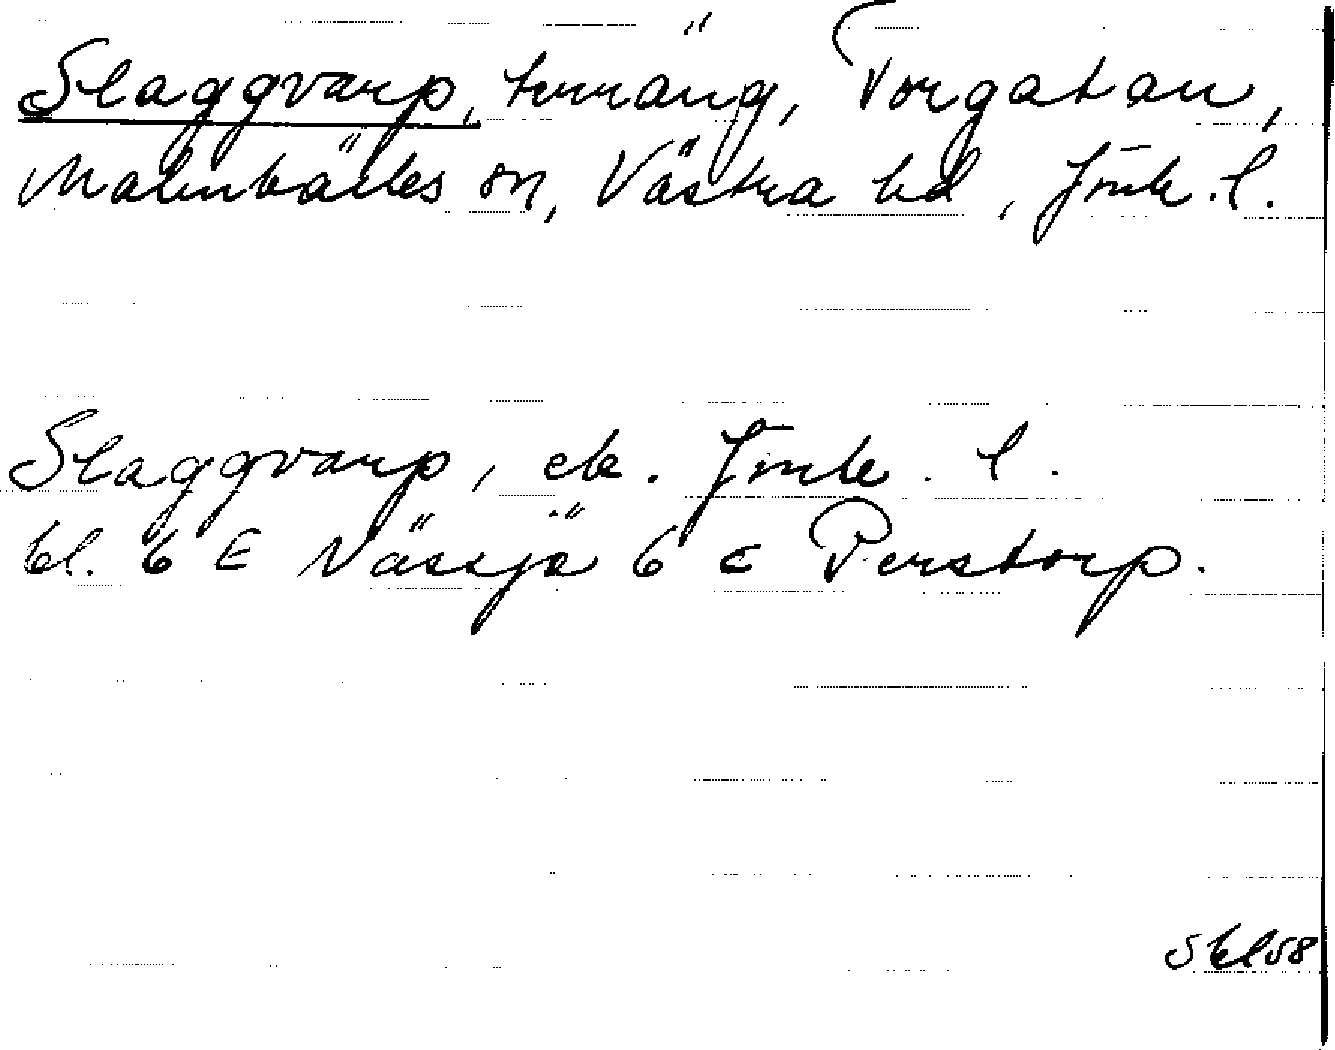 Slaggvarp, terräng, Torgatan,
Malmbäcks sn, Västra hd, Jönk. l.
Slaggvarp, ek. Jönk. l.
bl. 6 E Nässjö 6 c Perstorp.